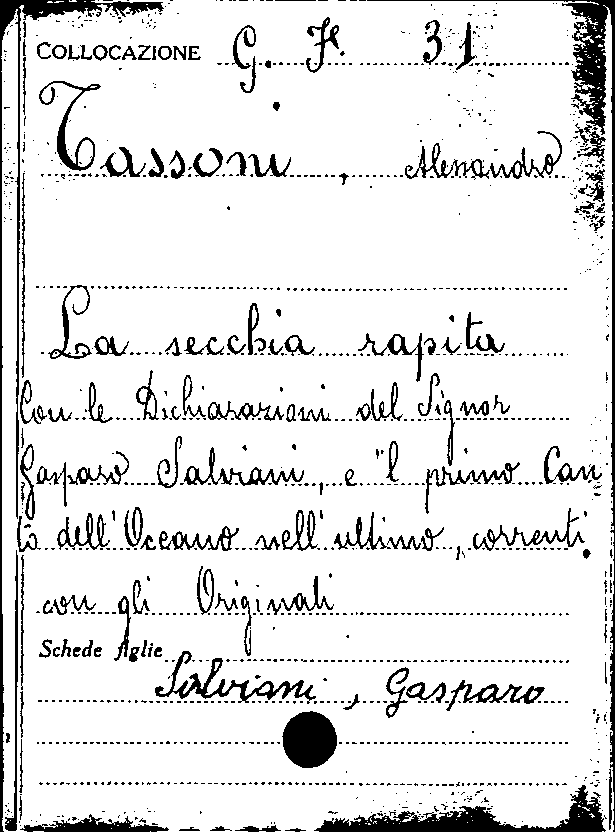 COLLOCAZIONE G. F. 31
Tassoni, Alessandro
La secchia rapita
Con le Dichiarazioni del Signor
Gasparo Salviani, e 'l primo Can
to dell'Oceano nell'ultimo, correnti.
con gli Originali
Schede figlie
Salviani, Gasparo